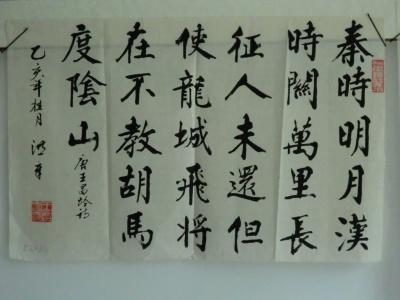 秦時明月漢
時關萬里長
征人未還但
使龍城飛將
在不教胡馬
度陰山
唐王昌龄詩
乙亥年桂月